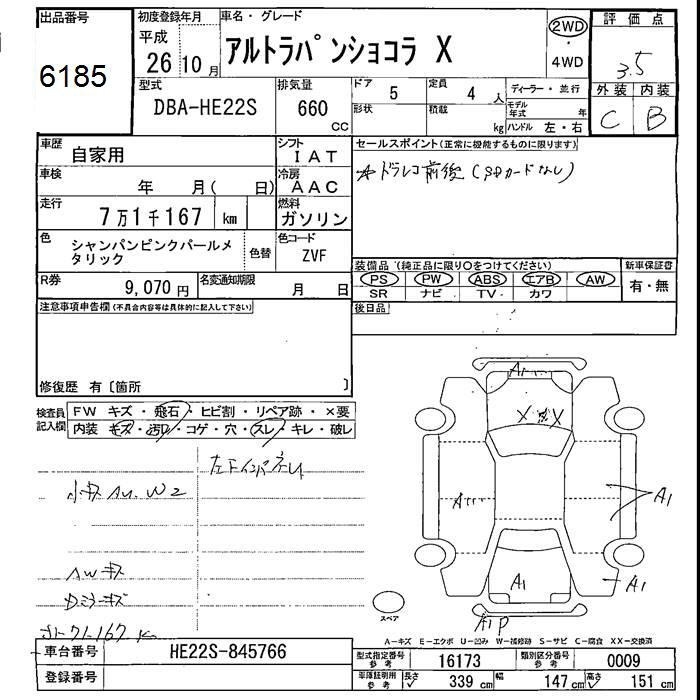 出品番号
6185
初度登録年月
平成
26年10月
車名・グレード
アルトラパンショコラ X
2WD
・
4WD
評価点
3.5
外装 内装
C B
型式
DBA-HE22S
排気量
660
cc
ドア
5
定員
4人
形状
積載
kg
ディーラー・並行
モデル年式 年
ハンドル 左・右
車歴
自家用
シフト
IAT
車検
年 月( 日)
冷房
AAC
走行
7万1千167 km
燃料
ガソリン
色
シャンパンピンクパールメタリック
色替
色コード
ZVF
R券
9,070円
名変通知期限
月 日
セールスポイント(正常に機能するものに限ります)
☆ドラレコ前後(SDカードなし)
装備品 (純正品に限り○をつけてください)
PS PW ABS エアB AW
SR ナビ TV カワ
新車保証書
有・無
後日品
注意事項申告欄(不具合内容等は具体的に記入して下さい)
修復歴 有〔箇所 〕
検査員記入欄
FW キズ・飛石・ヒビ割・リペア跡・×要
内装 キズ・汚レ・コゲ・穴・スレ・キレ・破レ
小キズ AU、W2
AWキズ
Dミラーキズ
A1
X X
A
A1
A1
A1
A1P
スペア
A-キズ E-エクボ U-凹み W-補修跡 S-サビ C-腐食 XX-交換済
車台番号
HE22S-845766
登録番号
型式指定番号 参考
16173
類別区分番号 参考
0009
車庫証明用 参考
長さ 339cm
幅 147cm
高さ 151cm